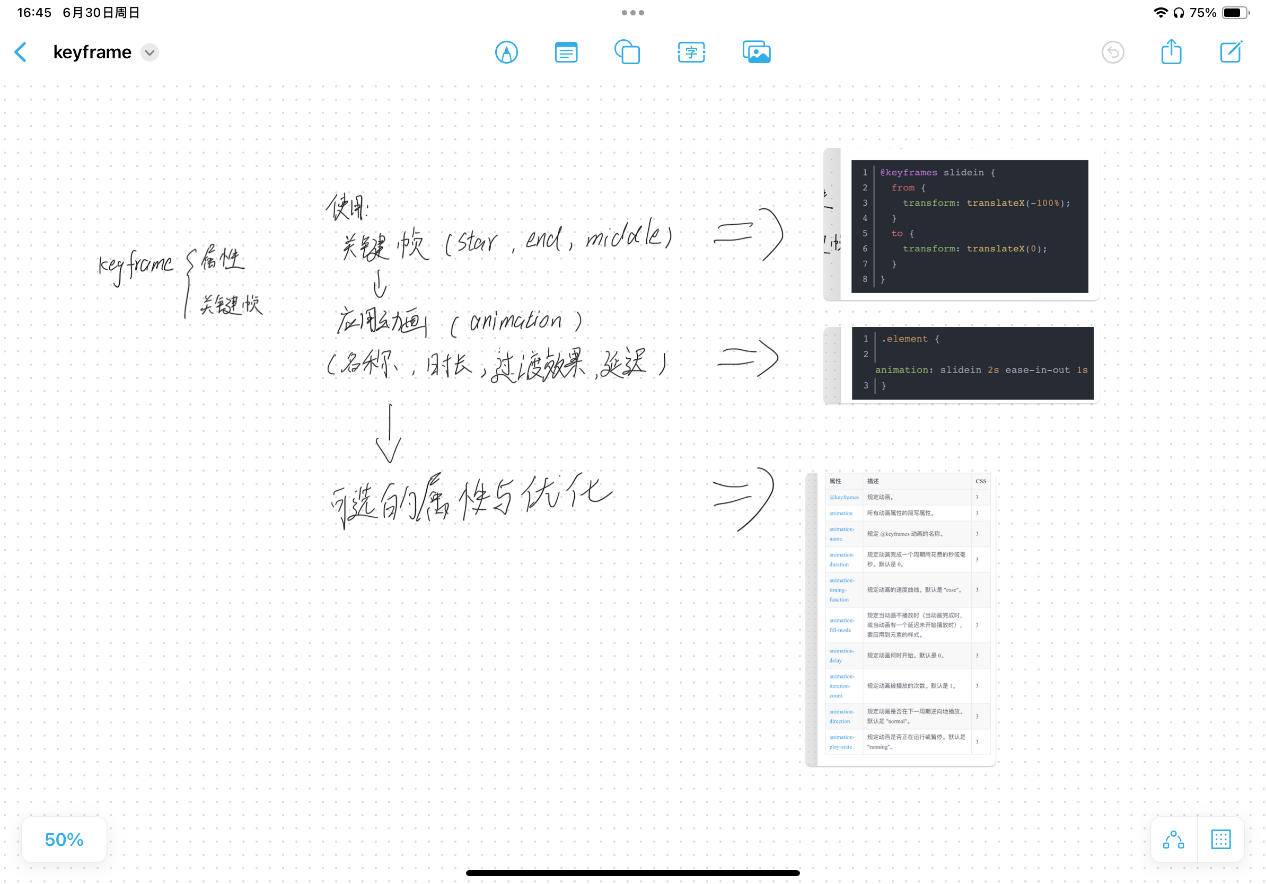 16:45 6月30日周日
75%
keyframe
字
使用:
关键帧 (star, end, middle)
keyframe
属性
关键帧
应用动画 (animation)
(名称, 时长, 过渡效果, 延迟)
可选的属性与优化
1 @keyframes slidein {
2 from {
3 transform: translateX(-100%);
4 }
5 to {
6 transform: translateX(0);
7 }
8 }
1 .element {
2
animation: slidein 2s ease-in-out 1s
3 }
属性 描述 CSS
@keyframes 规定动画。 3
animation 所有动画属性的简写属性。 3
animation-name 规定 @keyframes 动画的名称。 3
animation-duration 规定动画完成一个周期所花费的秒或毫秒。默认是 0。 3
animation-timing-function 规定动画的速度曲线。默认是 "ease"。 3
animation-fill-mode 规定当动画不播放时（当动画完成时，或当动画有一个延迟未开始播放时），要应用到元素的样式。 3
animation-delay 规定动画何时开始。默认是 0。 3
animation-iteration-count 规定动画被播放的次数。默认是 1。 3
animation-direction 规定动画是否在下一周期逆向地播放。默认是 "normal"。 3
animation-play-state 规定动画是否正在运行或暂停。默认是 "running"。 3
50%